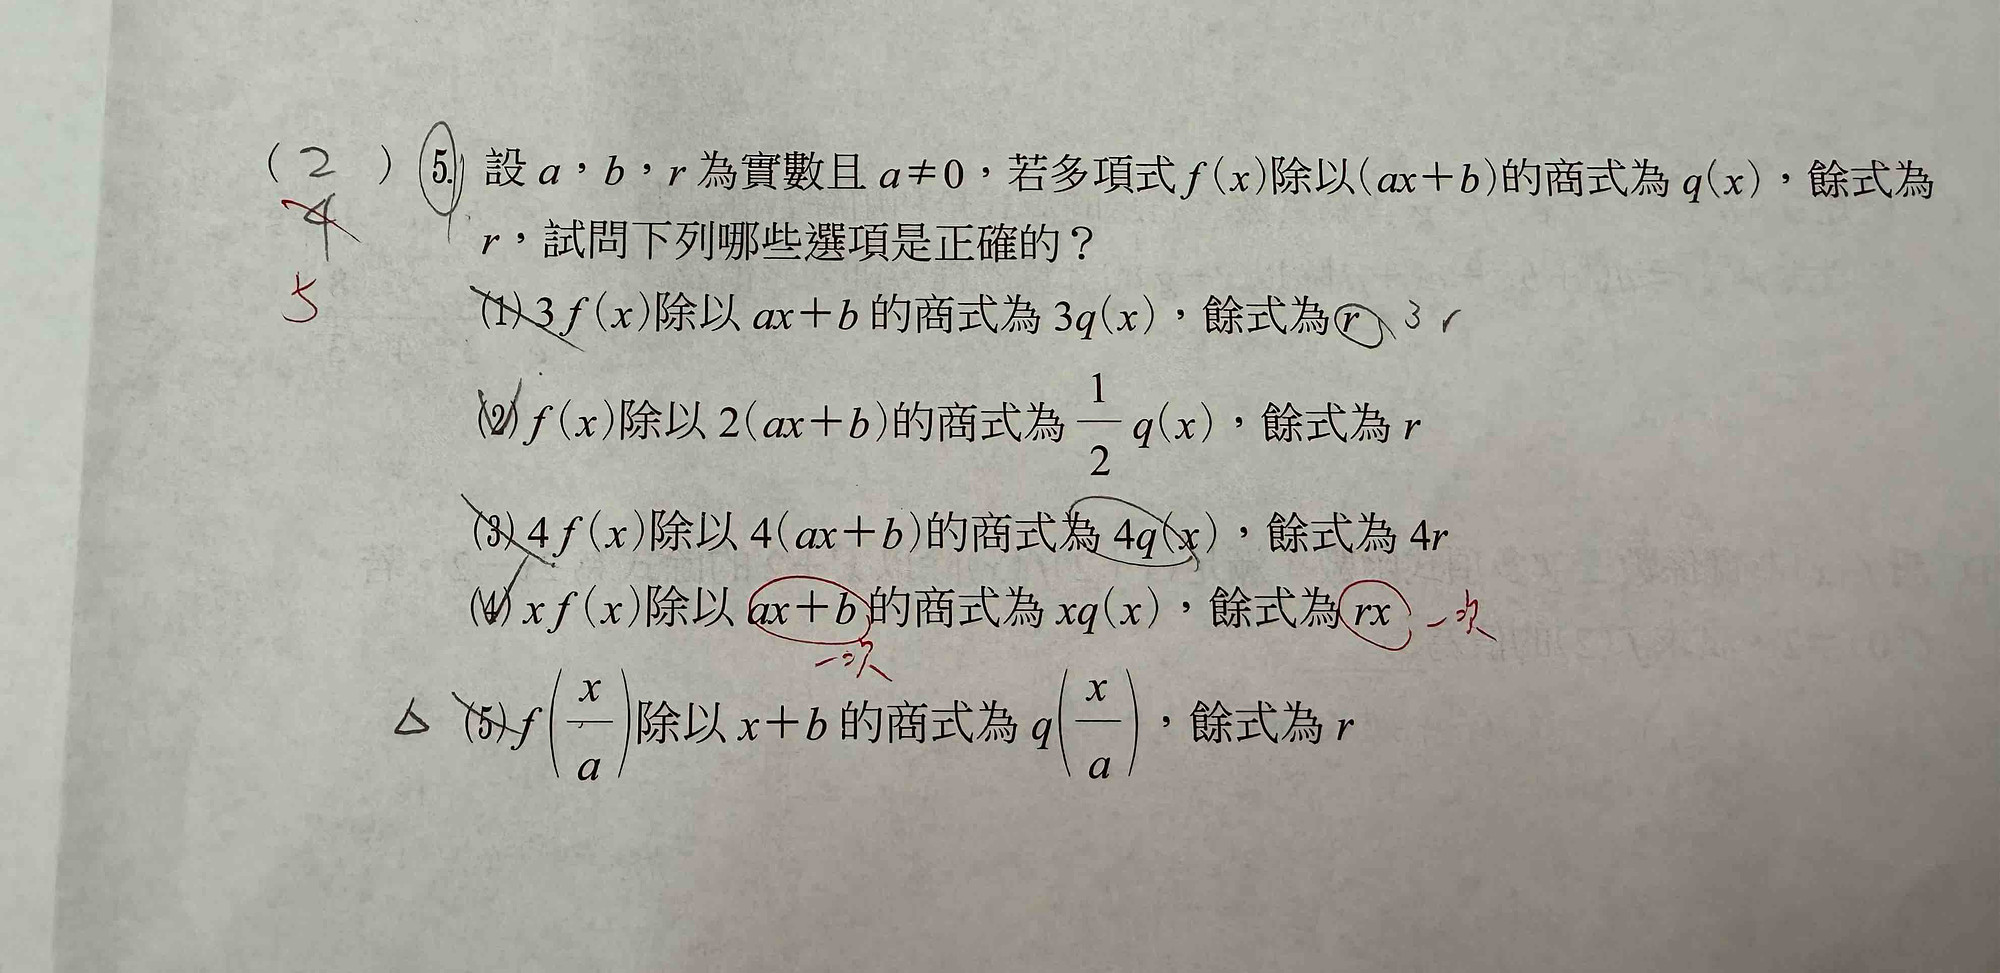 ( 2 ) 5. 設 a，b，r 為實數且 a≠0，若多項式 f(x)除以(ax+b)的商式為 q(x)，餘式為
4
r，試問下列哪些選項是正確的？
5
(1) 3f(x)除以 ax+b 的商式為 3q(x)，餘式為 r 3r
(2) f(x)除以 2(ax+b)的商式為 1/2 q(x)，餘式為 r
(3) 4f(x)除以 4(ax+b)的商式為 4q(x)，餘式為 4r
(4) xf(x)除以 ax+b 的商式為 xq(x)，餘式為 rx 一次
一次
△ (5) f(x/a)除以 x+b 的商式為 q(x/a)，餘式為 r